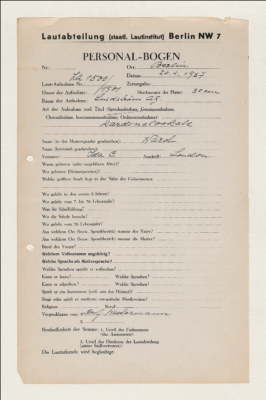 Lautabteilung (staatl. Lautinstitut) Berlin NW 7
PERSONAL-BOGEN
Nr.: Ort: Berlin
LA 1500/ Datum: 20.4.1937
Laut-Aufnahme Nr. Zeitangabe:
Dauer der Aufnahme: Durchmesser der Platte: 30 cm
Raum der Aufnahme: Lindström AG.
Art der Aufnahme und Titel
Kardinalvokale
Name (in der Muttersprache geschrieben): Ward
Name (lateinisch geschrieben):
Vorname: Ida C. Anschrift: London
Wann geboren (oder ungefähres Alter)?
Wo geboren (Heimatprovinz)?
Welche größere Stadt liegt in der Nähe des Geburtsortes:
Wo gelebt in den ersten 6 Jahren?
Wo gelebt vom 7. bis 20. Lebensjahr?
Was für Schulbildung?
Wo die Schule besucht?
Wo gelebt vom 20. Lebensjahr?
Aus welchem Ort (bezw. Sprachbezirk) stammt der Vater?
Aus welchem Ort (bezw. Sprachbezirk) stammt die Mutter?
Beruf des Vaters?
Welchem Volksstamm angehörig?
Welche Sprache als Muttersprache?
Welche Sprachen spricht er vollendet?
Kann er lesen? Welche Sprachen?
Kann er schreiben? Welche Sprachen?
Spielt er ein Instrument (evtl. aus der Heimat)?
Singt oder spielt er moderne europäische Musikweisen?
Religion: Beruf:
Vorgeschlagen von: 1. Westermann
2.
Beschaffenheit der Stimme: 1. Urteil des Fachmannes
(des Assistenten)
2. Urteil des Direktors der Lautabteilung
(seines Stellvertreters):
Die Lauturkunde wird beglaubigt: